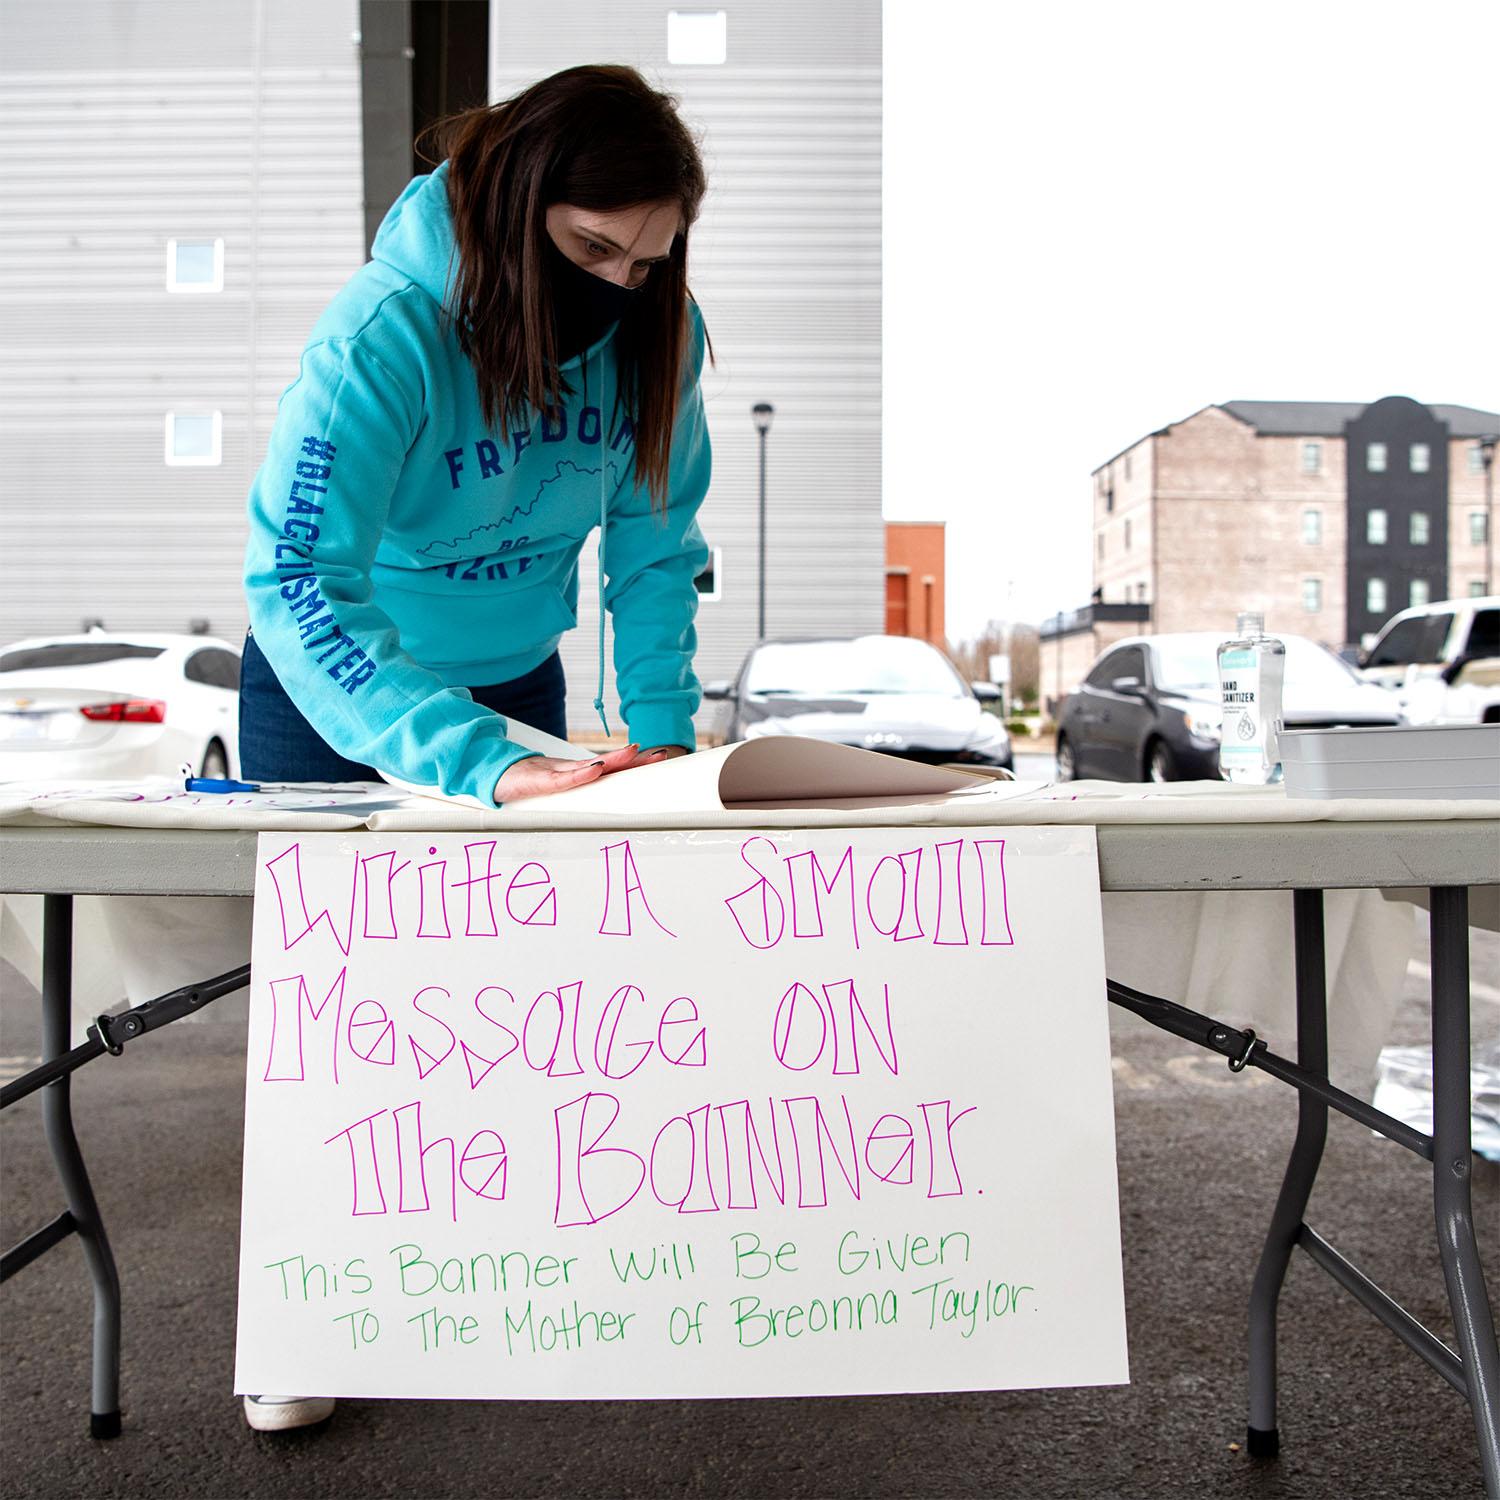 FREEDOM
BG
#BLACKLIVESMATTER
HAND
SANITIZER
Write A Small
Message on
The Banner.
This Banner Will Be Given
To The Mother of Breonna Taylor.